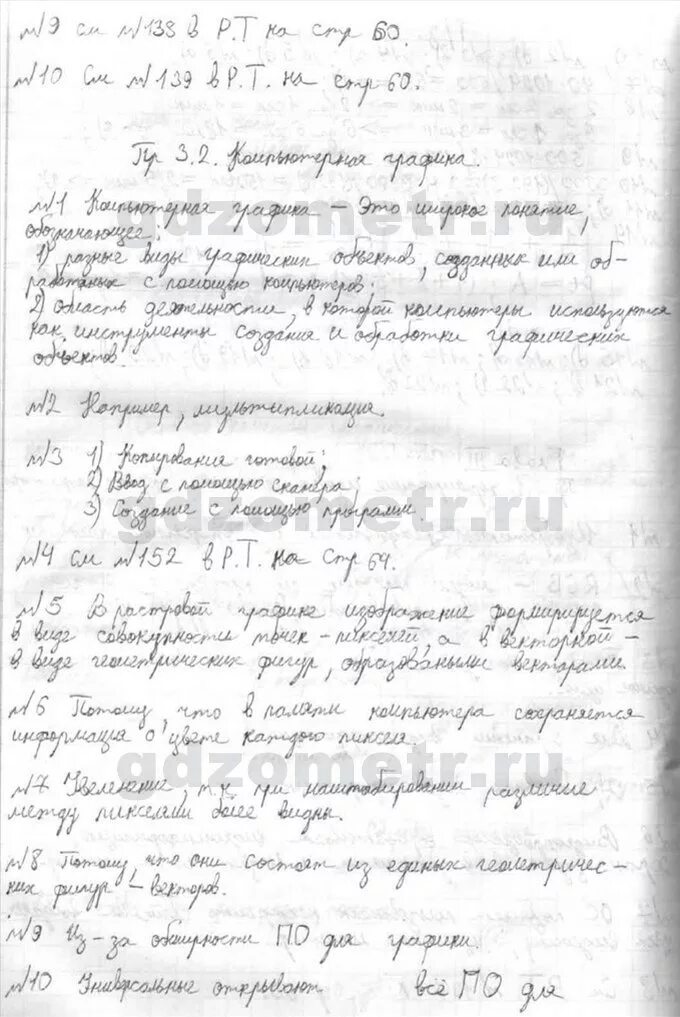 №9 см №138 в Р.Т на стр 60.
№10 См №139 в Р.Т. на стр 60.
Пр 3.2. Компьютерная графика.
№1 Компьютерная графика – Это широкое понятие,
обозначающее:
1) разные виды графических объектов, созданных или об-
работаных с помощью компьютеров;
2) область деятельности, в которой компьютеры используются
как инструменты создания и обработки графических
объектов.
№2 Например, мультипликация.
№3 1) Копирования готовой;
2) Ввод с помощью сканера
3) Создание с помощью программ.
№4 см №152 в Р.Т. на стр 64.
№5 В растровой графике изображение формирируется
в виде совокупности точек – пикселей, а в векторной –
в виде геометрических фигур, образоваными векторами.
№6 Потому, что в памяти компьютера сохраняется
информация о цвете каждого пикселя.
№7 Увеление, т.к при маштабировании различие
между пикселами более видны.
№8 Потому, что они состоят из единых геометричес-
ких фигур – векторов.
№9 Из-за обширности ПО для графики.
№10 Универсальные открывают всё ПО для
gdzometr.ru
gdzometr.ru
gdzometr.ru